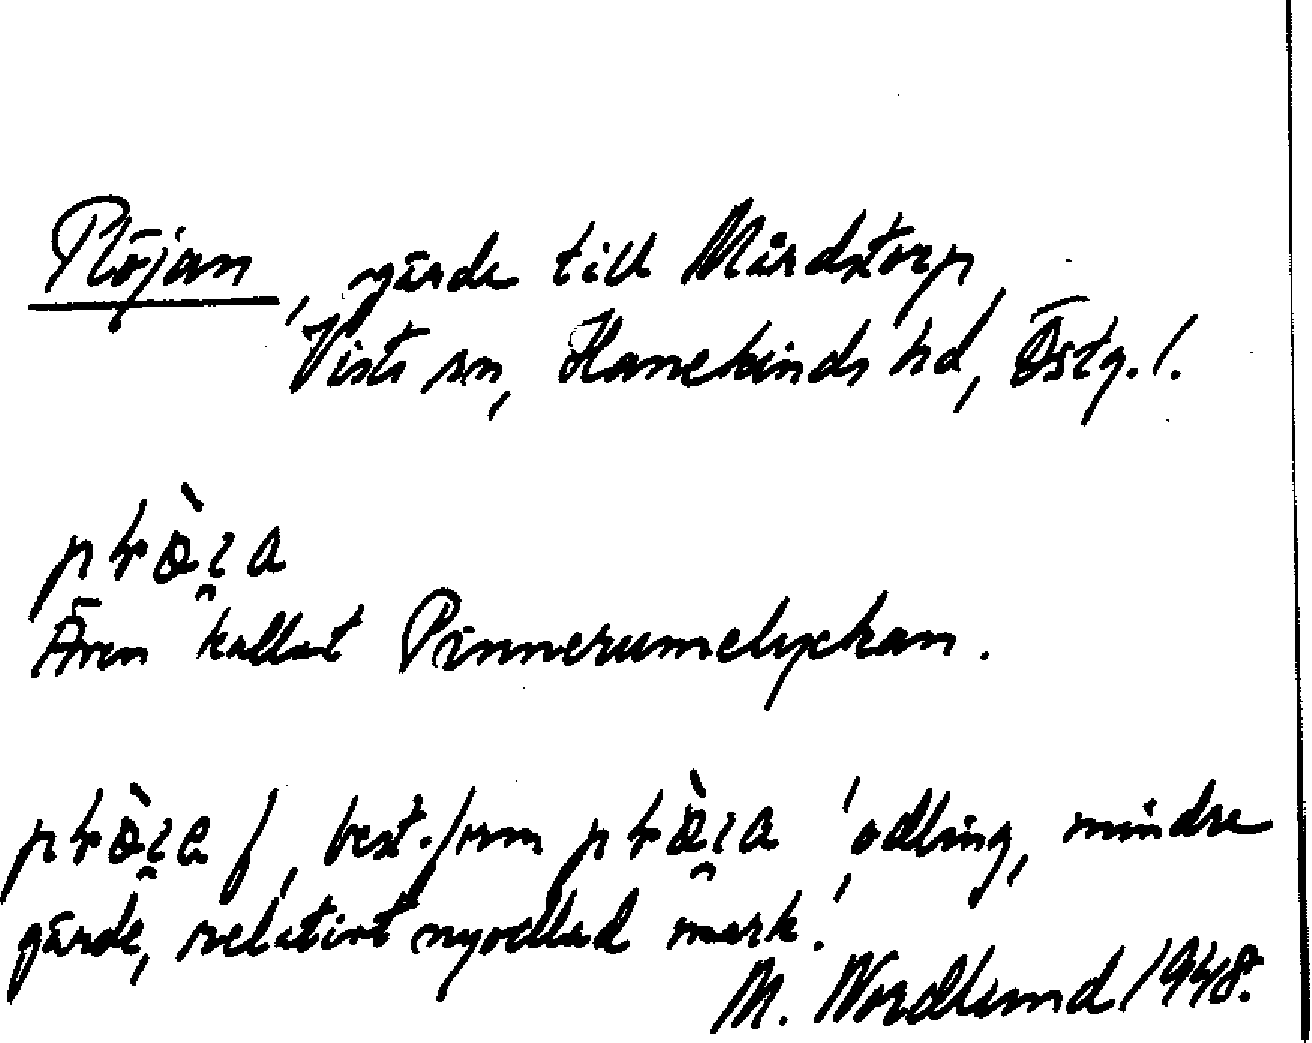 Plöjan, gärde till Mårdstorp,
Vists sn, Hanekinds hd, Östg. l.
Även kallat Pinnerumelyckan.
f, best. form 'odling, mindre
gärde, relativt nyodlad mark'.
M. Nordlund 1948.